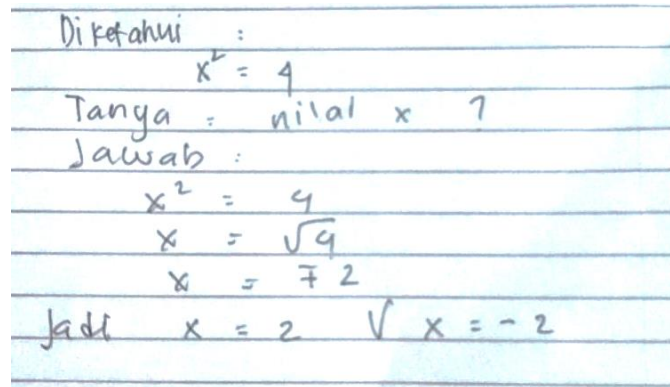 Diketahui :
x² = 4
Tanya = nilai x ?
Jawab :
x² = 4
x = √4
x = ∓ 2
Jadi x = 2 V x = - 2